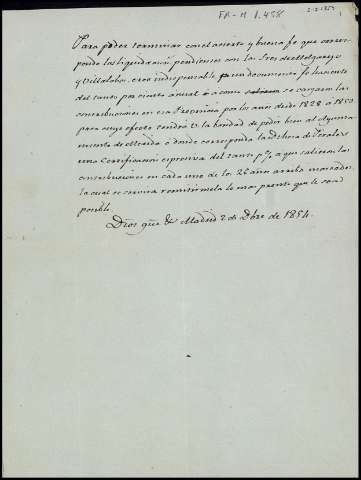 FR-M 1.458
2-2-1854
Para poder terminar con el acierto y buena fe que corres-
ponde las liquidaciones pendientes con los Sres de Melgarejo
y Villalobos, creo indispensable un documento fehaciente
del tanto por ciento anual ó a como se cargaron las
contribuciones en esa Provincia por los años desde 1828 a 1853
para cuyo efecto tendrá V. la bondad de pedir bien al Ayunta-
miento de Mérida o donde corresponda la Dehesa de
una Certificacion expresiva del tanto p% a que salieron las
contribuciones en cada uno de los 26 años arriba marcados,
la cual se servirá remitirmela lo mas pronto que le sea
posible.
Dios gue &ª Madrid 2 de Dbre de 1854.